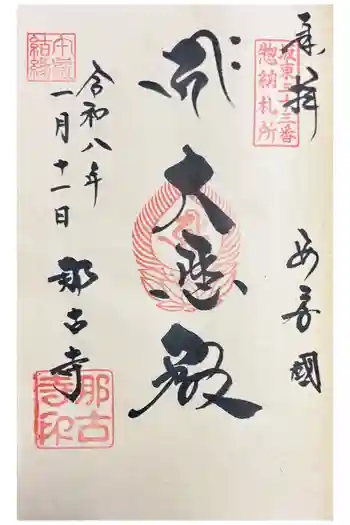 奉拝
坂東三十三番
惣納札所
安房國
大悲殿
令和八年
一月十一日
那古寺
本尊
結縁
那古
寺印